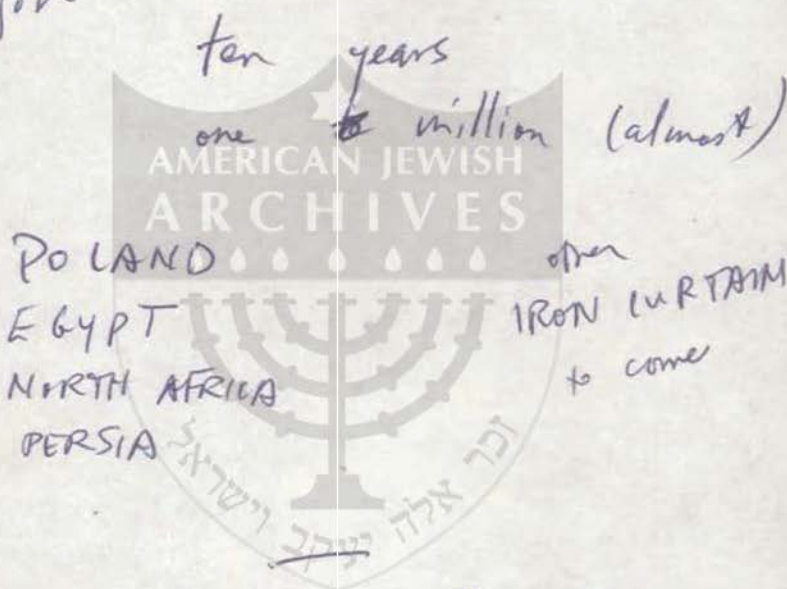 ten years
one million (almost)
AMERICAN JEWISH
ARCHIVES
POLAND
EGYPT
NORTH AFRICA
PERSIA
other
IRON CURTAIN
to come
זכר אלה יעקב וישראל